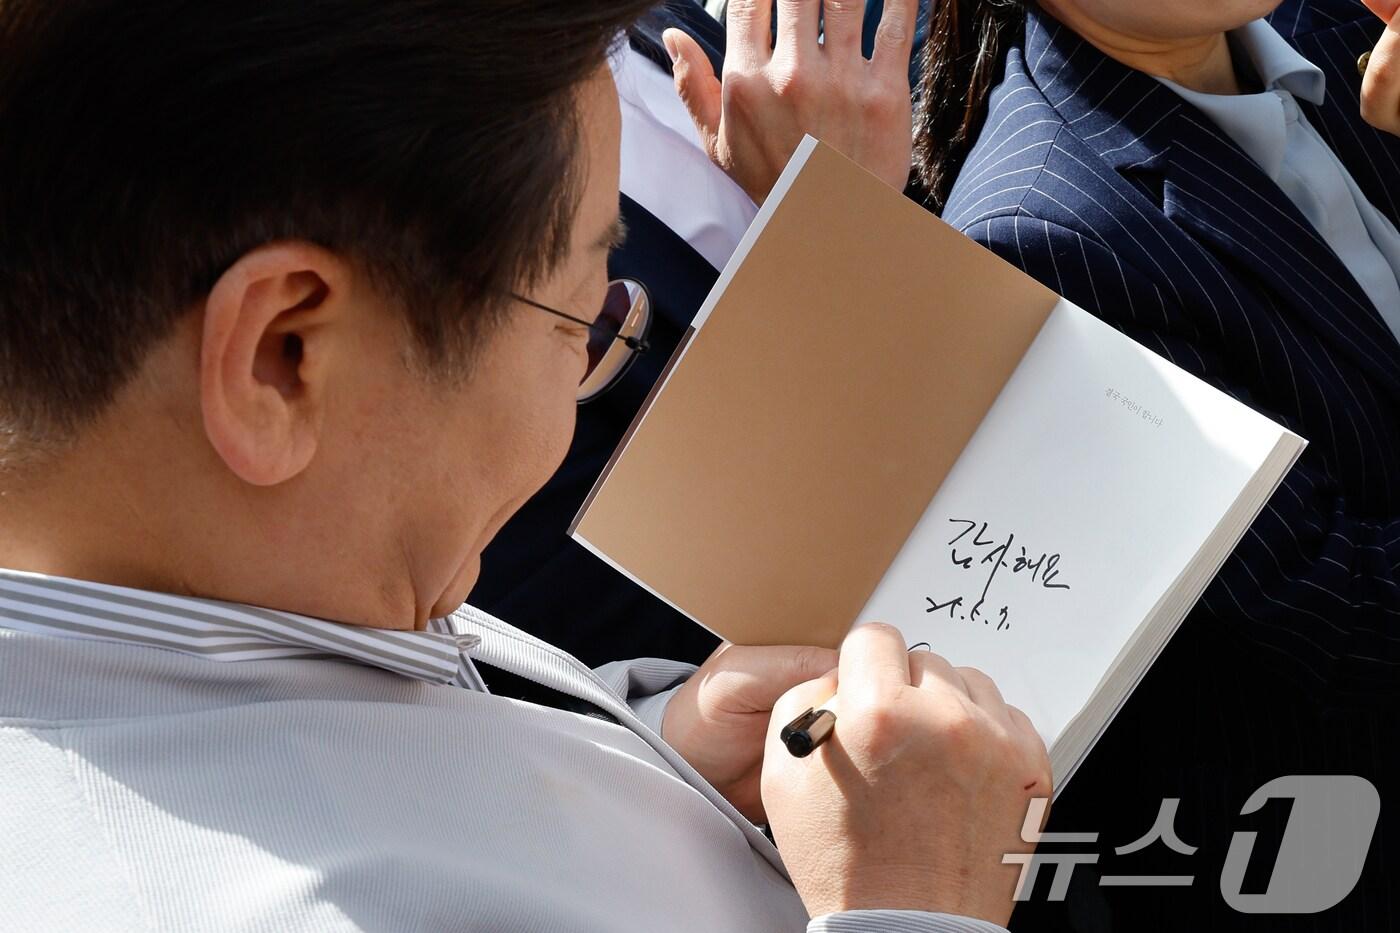 결국 국민이 합니다
감사해요
25. 5. 7.
뉴스1